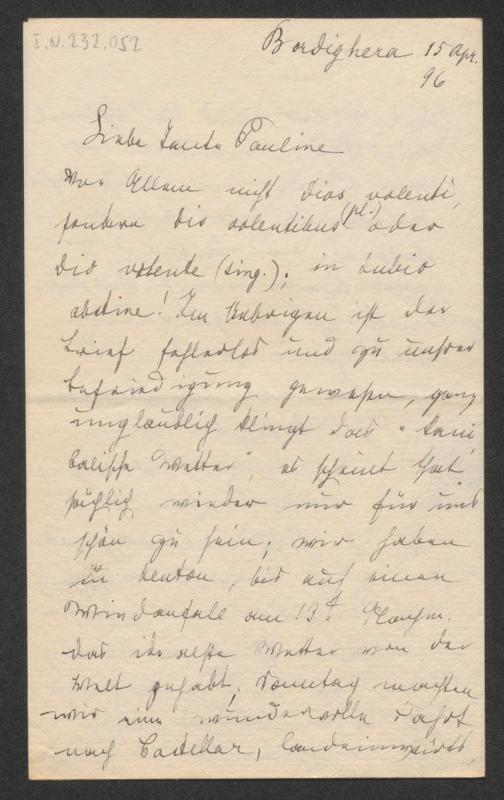 I.N. 232.052
Bordighera 15 Apr.
96
Liebe Tante Pauline
Vor Allem nicht Dios volenti,
sondern dis volentibus (pl.) oder
dio volente (sing.); in dubio
abstine! Im Uebrigen ist der
Brief fehlerlos und zu unsrer
Befriedigung gewesen, ganz
unglaublich klingt das "kani
balische Wetter", es scheint that
sächlich wieder nur für uns
schön zu sein; wir haben
in Menton, bis auf einen
Windanfall am 13t Nachm.
das idealste Wetter von der
Welt gehabt, Sonntag machten
wir eine wundervolle Fahrt
nach Castellar, landeinwärts,